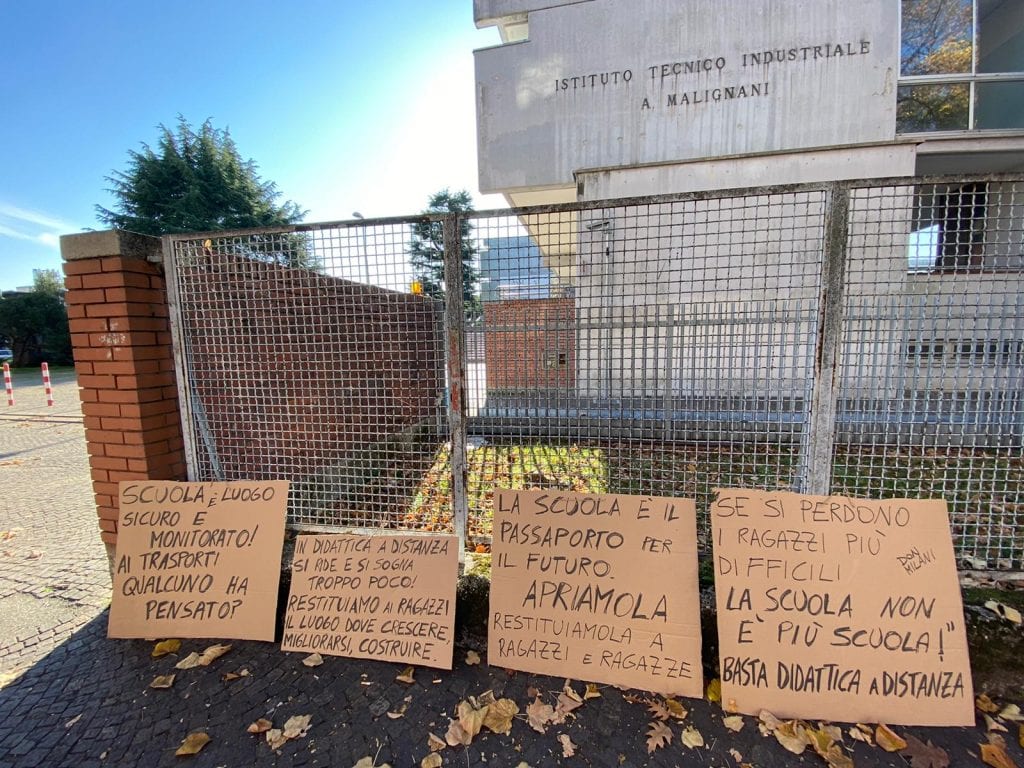 ISTITUTO TECNICO INDUSTRIALE
A. MALIGNANI
SCUOLA È LUOGO
SICURO E
MONITORATO!
AI TRASPORTI
QUALCUNO HA
PENSATO?
IN DIDATTICA A DISTANZA
SI RIDE E SI SOGNA
TROPPO POCO!
RESTITUIAMO AI RAGAZZI
IL LUOGO DOVE CRESCERE,
MIGLIORARSI, COSTRUIRE.
LA SCUOLA È IL
PASSAPORTO PER
IL FUTURO.
APRIAMOLA
RESTITUIAMOLA A
RAGAZZI E RAGAZZE
SE SI PERDONO
I RAGAZZI PIÙ
DIFFICILI
DON
MILANI
LA SCUOLA NON
È PIÙ SCUOLA!"
BASTA DIDATTICA A DISTANZA